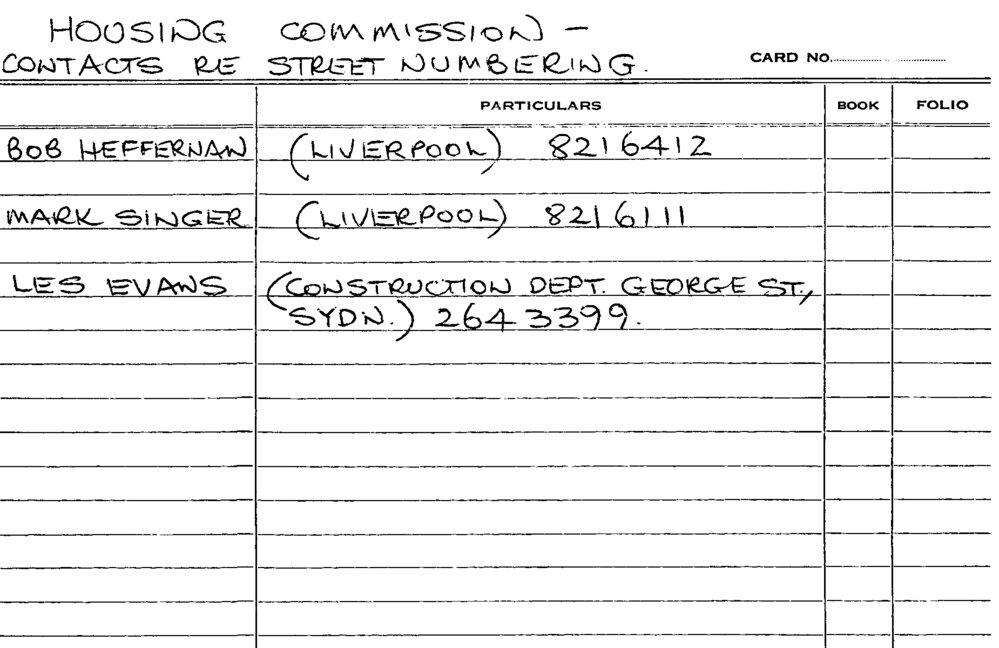 HOUSING COMMISSION -
CONTACTS RE STREET NUMBERING.
CARD No.
PARTICULARS BOOK FOLIO
BOB HEFFERNAN (LIVERPOOL) 8216412
MARK SINGER (LIVERPOOL) 8216111
LES EVANS (CONSTRUCTION DEPT. GEORGE ST,
SYDN.) 264 3399.